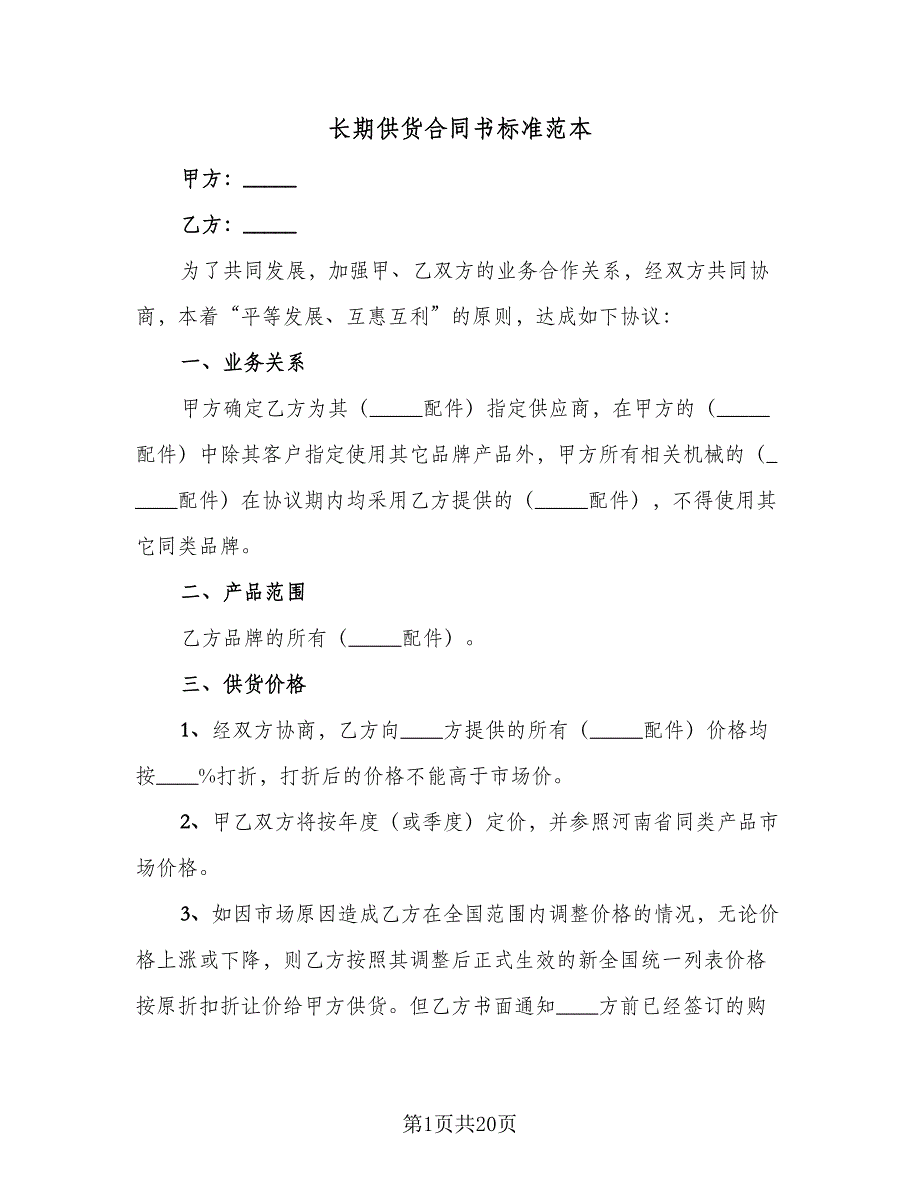 长期供货合同书标准范本
甲方：_____
乙方：_____
为了共同发展，加强甲、乙双方的业务合作关系，经双方共同协
商，本着“平等发展、互惠互利”的原则，达成如下协议：
一、业务关系
甲方确定乙方为其（_____配件）指定供应商，在甲方的（_____
配件）中除其客户指定使用其它品牌产品外，甲方所有相关机械的（_
____配件）在协议期内均采用乙方提供的（_____配件），不得使用其
它同类品牌。
二、产品范围
乙方品牌的所有（_____配件）。
三、供货价格
1、经双方协商，乙方向____方提供的所有（_____配件）价格均
按____%打折，打折后的价格不能高于市场价。
2、甲乙双方将按年度（或季度）定价，并参照河南省同类产品市
场价格。
3、如因市场原因造成乙方在全国范围内调整价格的情况，无论价
格上涨或下降，则乙方按照其调整后正式生效的新全国统一列表价格
按原折扣折让价给甲方供货。但乙方书面通知____方前已经签订的购
第1页共20页